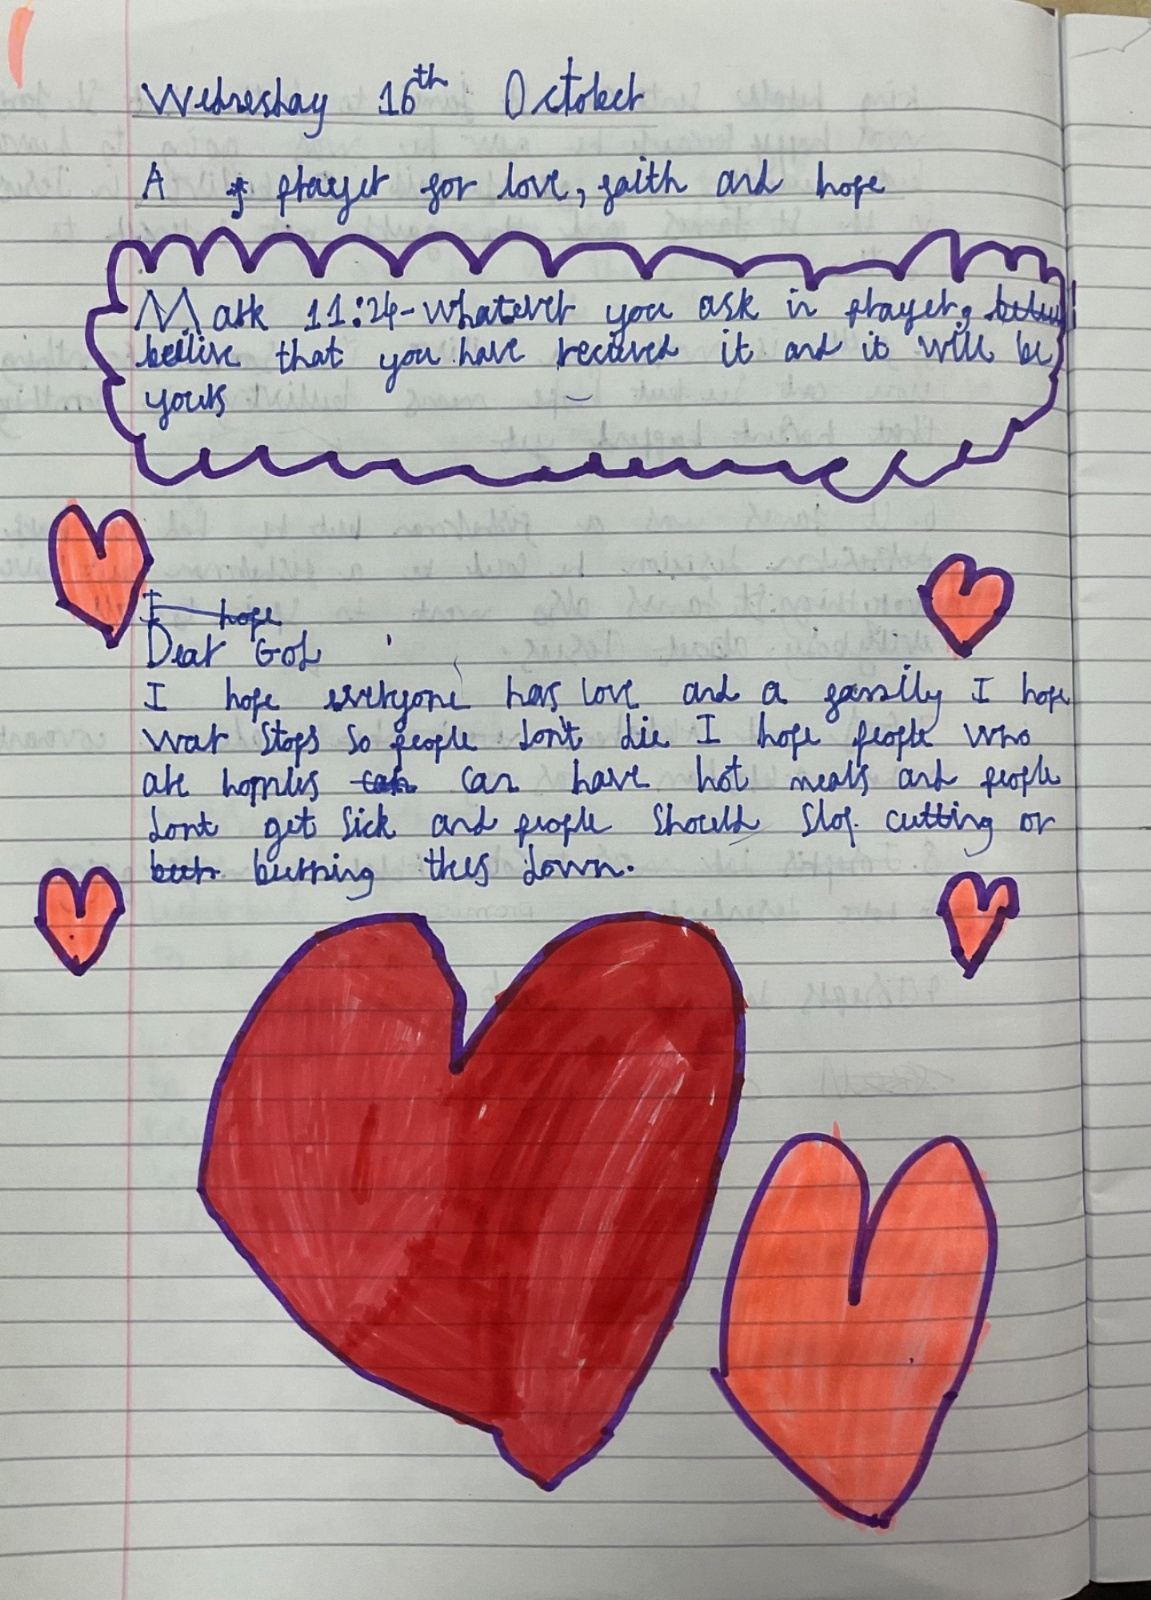 Wednesday 16th October
A prayer for love, faith and hope
Mark 11:24-whatever you ask in prayer,
beilive that you have recieved it and it will be
yours
I hope
Dear God
I hope everyone has love and a family I hope
war stops so people don't die I hope people who
are homles can can have hot meals and people
dont get sick and people should stop cutting or
burn burning thes down.